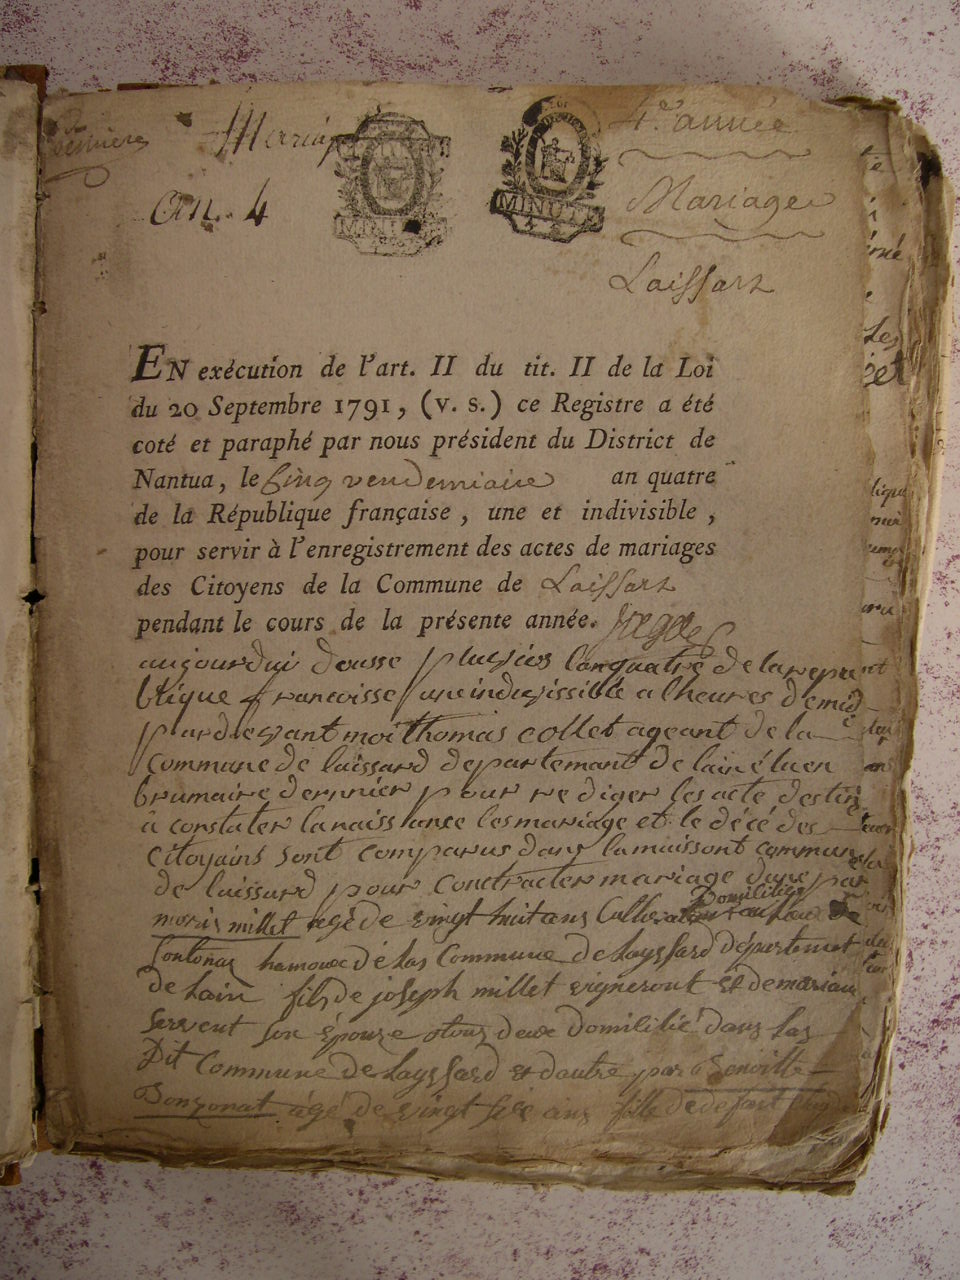 4.e année
Mariage
an. 4
MINUT
Mariages
Laissart
EN exécution de l'art. II du tit. II de la Loi
du 20 Septembre 1791, (v. s.) ce Registre a été
coté et paraphé par nous président du District de
Nantua, le cinq vendemiaire an quatre
de la République française, une et indivisible,
pour servir à l'enregistrement des actes de mariages
des Citoyens de la Commune de Laissart
pendant le cours de la présente année.
aujourdui dousse plusios lanquatre de la repu
blique francoisse une indivissible a lheures de midi
pardevant moi thomas collet ageant de la
commune de laissard departemant de lain élu en
brumaire dernnier pour rediger les acte destine
a constater la naissance les mariage et le décé des
citoyains sont comparus dans la maissont commune
de laissard pour conctracter mariage dune par
moris millet agé de vingt huit ans domicilié au
hamoux dé las Commune de Layssard départemet
de Lain fils de joseph millet vigneront et de
son épouze tous deux domilitié dans las
Dit Commune de Layssard et dautre par
Bonzonat agé de vingt ans fille de defunt